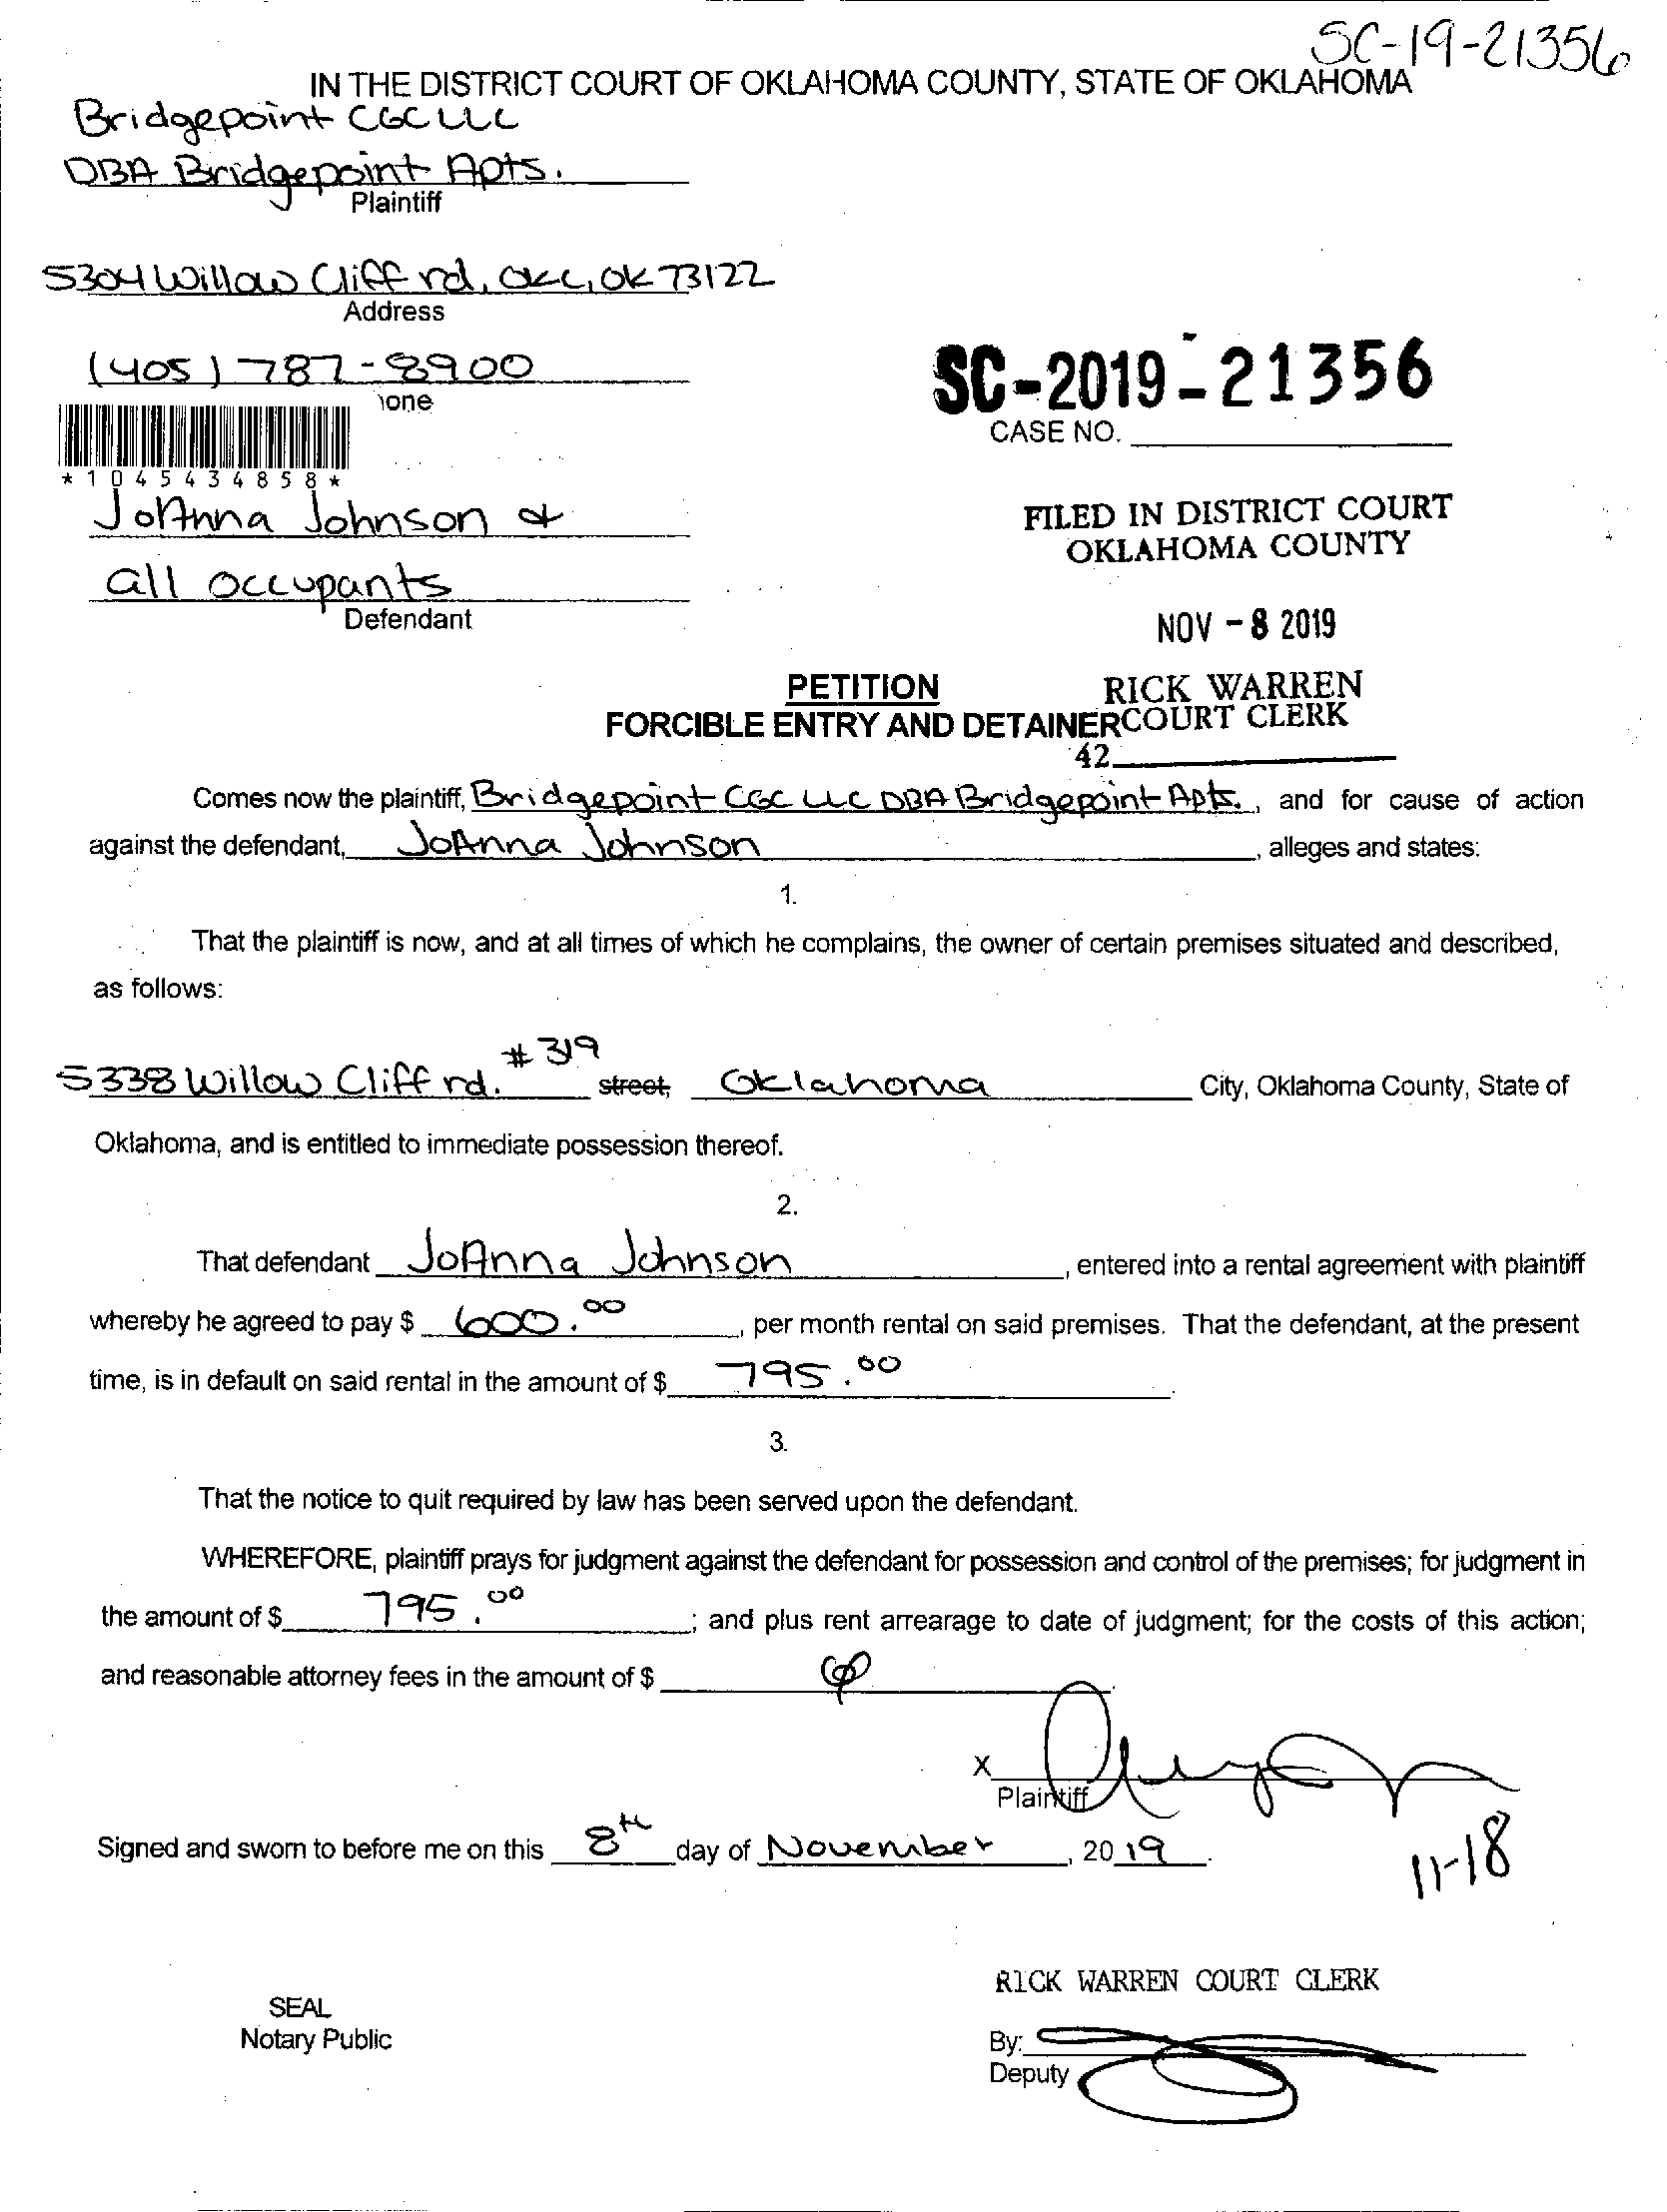 SC-19-21356
IN THE DISTRICT COURT OF OKLAHOMA COUNTY, STATE OF OKLAHOMA
Bridgepoint CGC LLC
DBA Bridgepoint Apts.
Plaintiff
5304 Willow Cliff rd, OKC, OK 73122
Address
(405) 787-8900
one
SC-2019-21356
CASE NO.
*1045434858*
JoAnna Johnson &
all occupants
Defendant
FILED IN DISTRICT COURT
OKLAHOMA COUNTY
NOV - 8 2019
PETITION
RICK WARREN
FORCIBLE ENTRY AND DETAINER COURT CLERK
42
Comes now the plaintiff, Bridgepoint CGC LLC DBA Bridgepoint Apts., and for cause of action
against the defendant, JoAnna Johnson, alleges and states:
1.
That the plaintiff is now, and at all times of which he complains, the owner of certain premises situated and described,
as follows:
5338 Willow Cliff rd. #319 street, Oklahoma City, Oklahoma County, State of
Oklahoma, and is entitled to immediate possession thereof.
2.
That defendant JoAnna Johnson, entered into a rental agreement with plaintiff
whereby he agreed to pay $ 600.00, per month rental on said premises. That the defendant, at the present
time, is in default on said rental in the amount of $ 795.00.
3.
That the notice to quit required by law has been served upon the defendant.
WHEREFORE, plaintiff prays for judgment against the defendant for possession and control of the premises; for judgment in
the amount of $ 795.00; and plus rent arrearage to date of judgment; for the costs of this action;
and reasonable attorney fees in the amount of $
X
Plaintiff
Signed and sworn to before me on this 8th day of November, 2019.
11-18
RICK WARREN COURT CLERK
SEAL
Notary Public
By:
Deputy